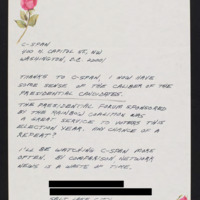 C-SPAN
400 N. CAPITOL ST., NW
WASHINGTON, D.C. 20001
THANKS TO C-SPAN, I NOW HAVE
SOME SENSE OF THE CALIBER OF THE
PRESIDENTIAL CANDIDATES.
THE PRESIDENTIAL FORUM SPONSORED
BY THE RAINBOW COALITION WAS
A GREAT SERVICE TO VOTERS THIS
ELECTION YEAR. ANY CHANCE OF A
REPEAT?
I'LL BE WATCHING C-SPAN MORE
OFTEN. BY COMPARISON NETWORK
NEWS IS A WASTE OF TIME.
SALT LAKE CITY